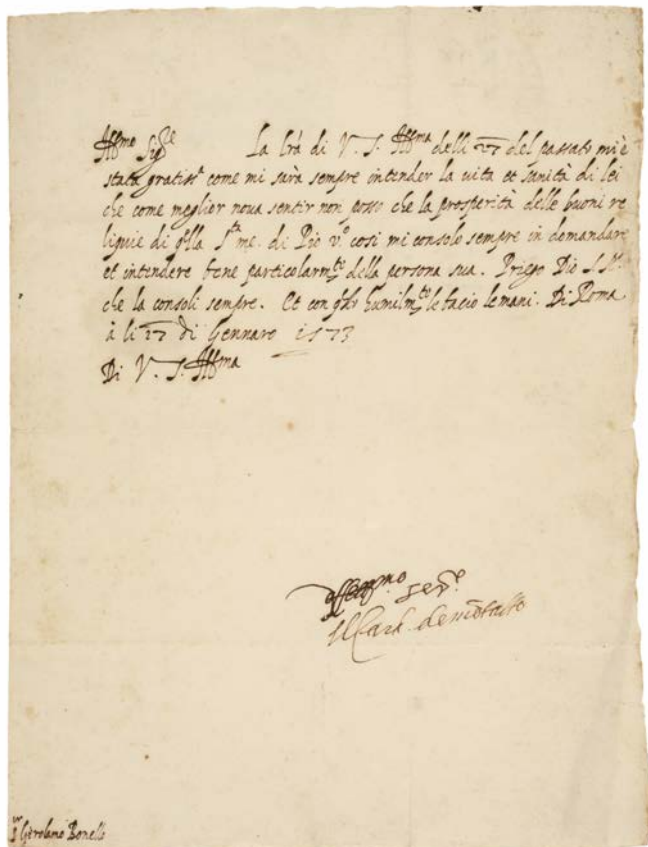 Ill.mo Sig.re La l'ra di V. S. Ill.ma delli 27 del passato mi è
stata gratiss.a come mi sarà sempre intender la uita et sanità di lei
che come meglior noua sentir non posso che la prosperità delle buoni re
liquie di q'lla S.ta me. di Pio v.o cosi mi consolo sempre in demandare
et intendere bene particolarm.te della persona sua. Priego Dio S. N.
che la consoli sempre. Et con q'sto humilm.te le bacio le mani. Di Roma
à li 27 di Gennaro 1573
Di V. S. Ill.ma
affett.mo ser.re
Il Card. de mo'talto
S.or Gerolamo Bonello